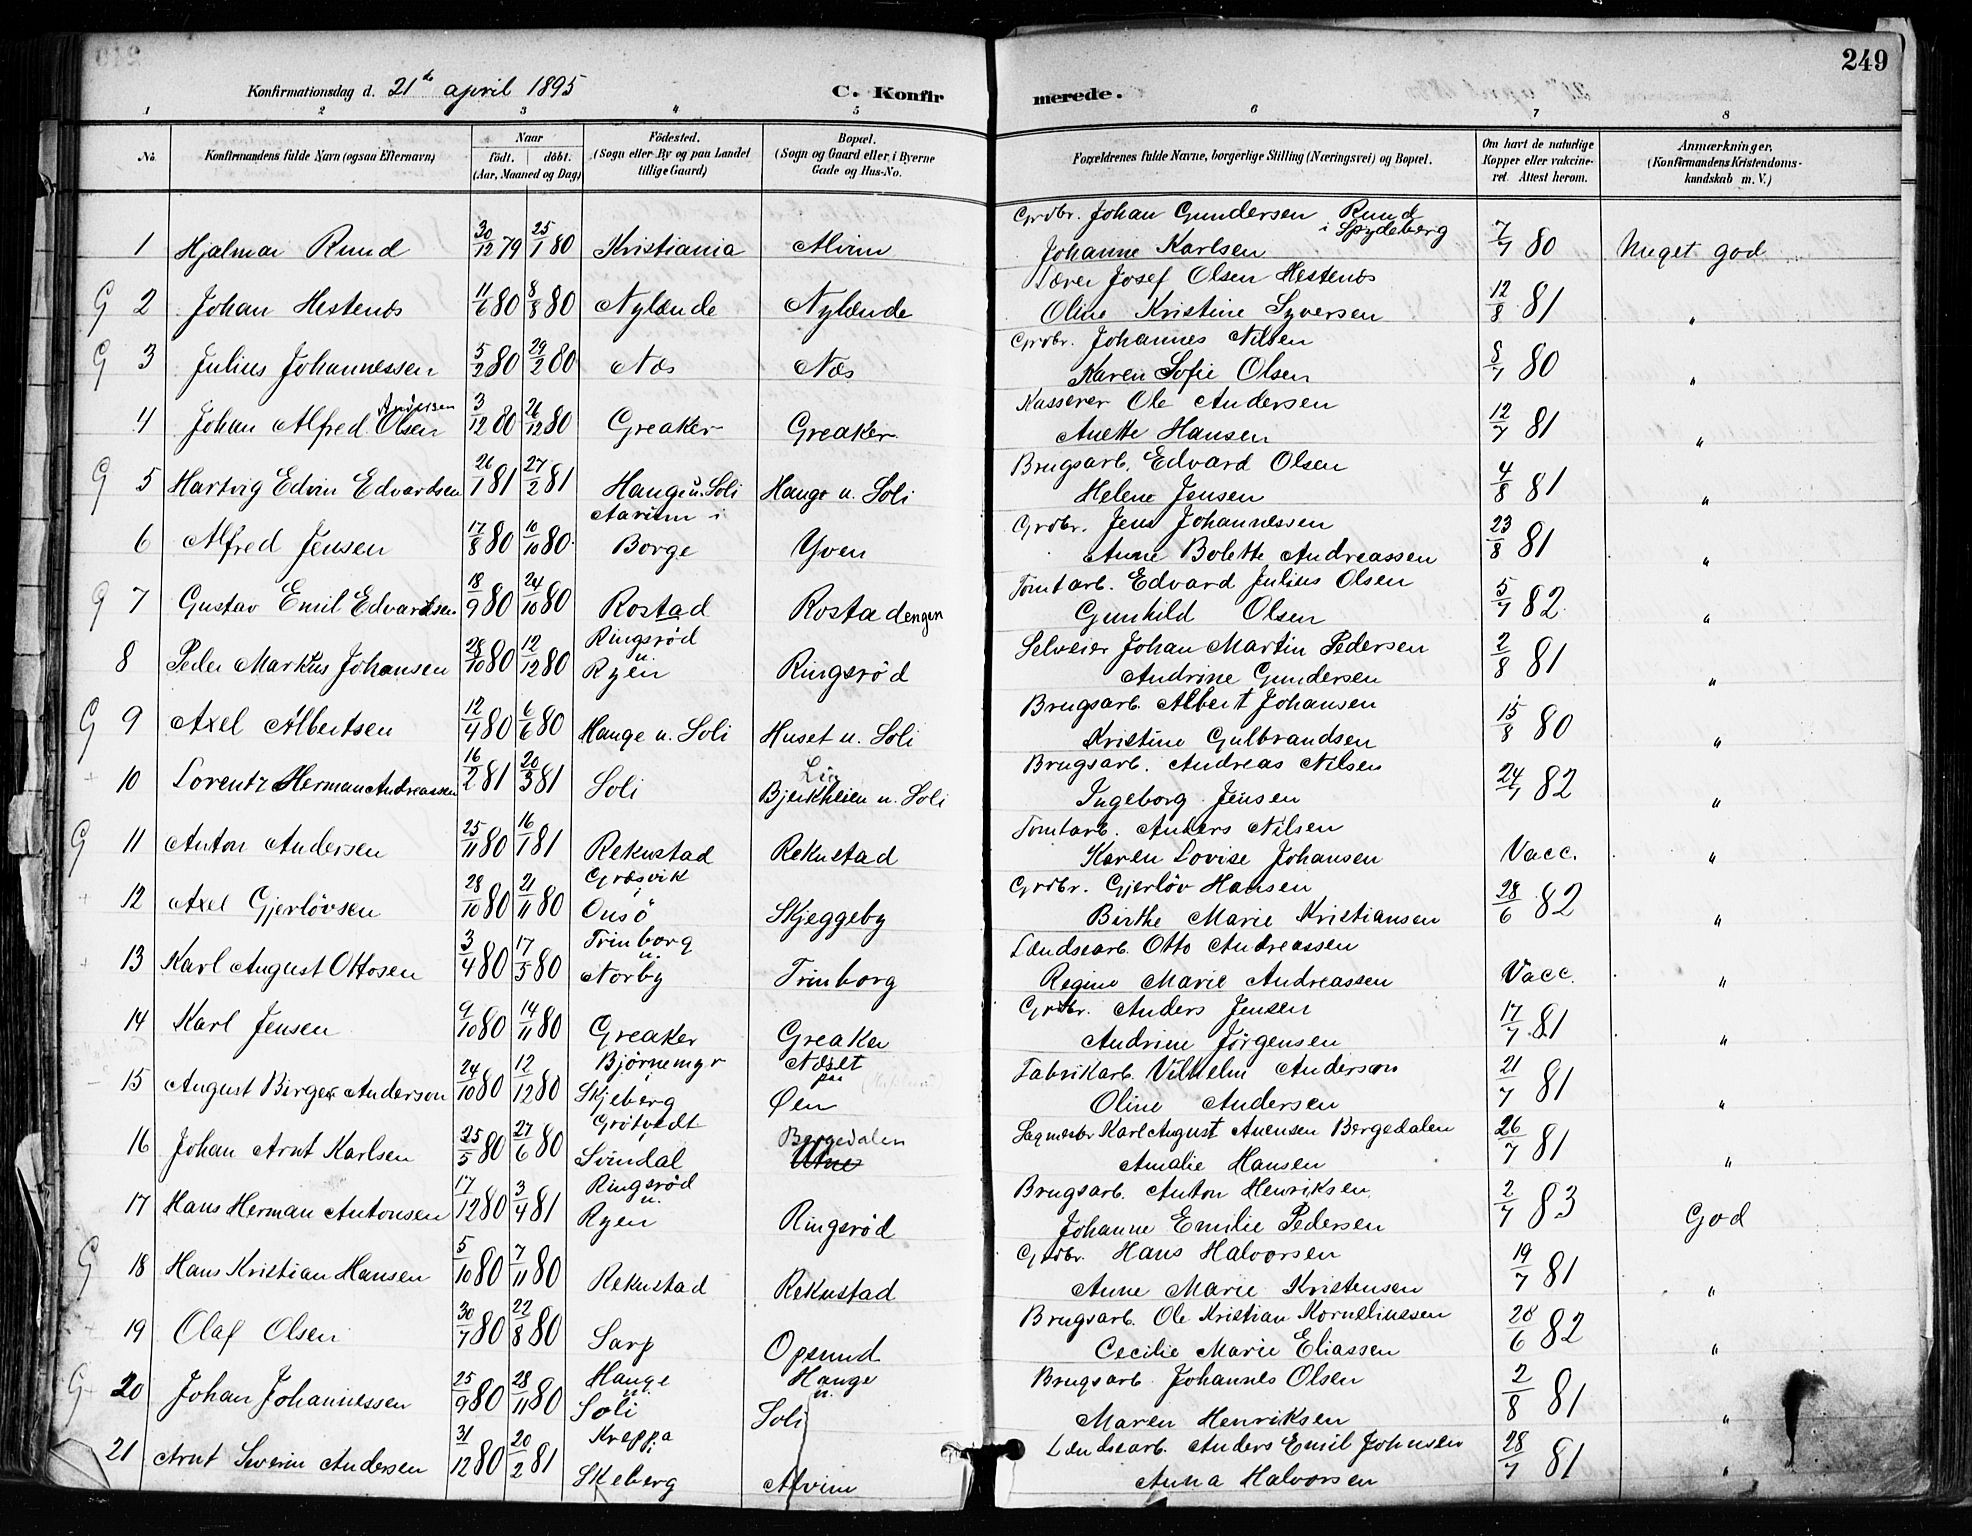 249
Konfirmationsdag d. 21de april 1895
C. Konfirmerede.
1 2 3 4 5 6 7 8
No. Konfirmandens fulde Navn (ogsaa Efternavn) Naar födt. döbt. (Aar, Maaned og Dag) Födested. (Sogn eller By og paa Landet tillige Gaard) Bopæl. (Sogn og Gaard eller, i Byerne Gade og Hus-No. Forældrenes fulde Navne, borgerlige Stilling (Næringsvei) og Bopæl. Om havt de naturlige Kopper eller vakcineret. Attest herom. Anmærkninger. (Konfirmandens Kristendomskundskab m. V.)
1 Hjalmar Rund 30/12 79 25/1 80 Kristiania Alvim Grdbr. Johan Gundersen Rund i Spydeberg Johanne Karlsen 7/7 80 Meget god
G 2 Johan Hestenes 11/6 80 8/8 80 Nylænde Nylænde Lærer Josef Olsen Hestenes Oline Kristine Syversen 12/8 81 "
G 3 Julius Johannessen 5/2 80 29/2 80 Næs Næs Grdbr. Johannes Nilsen Karen Sofie Olsen 8/7 80 "
4 Johan Alfred Olsen Andersen 3/12 80 26/12 80 Greaker Greaker Kasserer Ole Andersen Anette Hansen 12/7 81 "
G 5 Hartvig Edvin Edvardsen 26/1 81 27/2 81 Hauge u. Soli Hauge u. Soli Brugsarb. Edvard Olsen Helene Jensen 4/8 81 "
6 Alfred Jensen 17/8 80 10/10 80 Aarum i Borge Yven Grdbr. Jens Johannessen Anne Bolette Andreassen 23/8 81 "
G 7 Gustav Emil Edvardsen 18/9 80 24/10 80 Rostad Rostadengen Tomtarb. Edvard Julius Olsen Gunhild Olsen 5/7 82 "
8 Peder Markus Johansen 28/10 80 12/12 80 Ringsrød u. Ryen Ringsrød Selveier Johan Martin Pedersen Andrine Gundersen 2/8 81 "
G 9 Axel Albertsen 12/4 80 6/6 80 Hauge u. Soli Huset u. Soli Brugsarb. Albert Johansen Kristine Gulbrandsen 15/8 80 "
10 Lorentz Herman Andreassen 16/2 81 20/3 81 Soli Lin Bjerkheien u. Soli Brugsarb. Andreas Nilsen Ingeborg Jensen 24/7 82 "
G 11 Anton Andersen 25/11 80 16/1 81 Rekustad Rekustad Tomtarb. Anders Nilsen Karen Lovise Johansen Vacc. "
12 Axel Gjerløvsen 28/10 80 21/11 80 Græsvik i Onsö Skjeggeby Grdbr. Gjerløv Hansen Birthe Marie Kristiansen 28/6 82 "
13 Karl August Ottosen 3/4 80 17/5 80 Trinborg u. Norby Trinborg Lændsearb. Otto Andreassen Regine Marie Andreassen Vacc. "
14 Karl Jensen 9/10 80 14/11 80 Greaker Greaker Grdbr. Anders Jensen Andrine Jörgensen 17/7 81 "
15 August Birger Anderson 24/10 80 12/12 80 Bjørnemyr i Skjeberg Næset paa Øen Fabrikarb. Vilhelm Anderson Oline Andersen 21/7 81 "
16 Johan Arnt Karlsen 25/5 80 27/6 80 Grötvedt i Svindal Bergedalen Utne Sagmester Karl August Auensen Bergedalen Amalie Hansen 26/7 81 "
17 Hans Herman Antonsen 17/12 80 3/4 81 Ringsrød u. Ryen Ringsrød Brugsarb. Anton Henriksen Johanne Emilie Pedersen 2/7 83 God
G 18 Hans Kristian Hansen 5/10 80 7/11 80 Rekustad Rekustad Grdbr. Hans Halvorsen Anne Marie Kristensen 19/7 81 "
19 Olaf Olsen 30/7 80 22/8 80 Sarp Opsund Brugsarb. Ole Kristian Korneliussen Cecilie Marie Eliassen 28/6 82 "
G 20 Johan Johannessen 25/9 80 28/11 80 Hauge u. Soli Hauge u. Soli Brugsarb. Johannes Olsen Maren Henriksen 2/8 81 "
21 Arnt Severin Andersen 31/12 80 20/2 81 Kreppa i Skeberg Alvim Lændsearb. Anders Emil Johnsen Anna Halvorsen 28/7 81 "